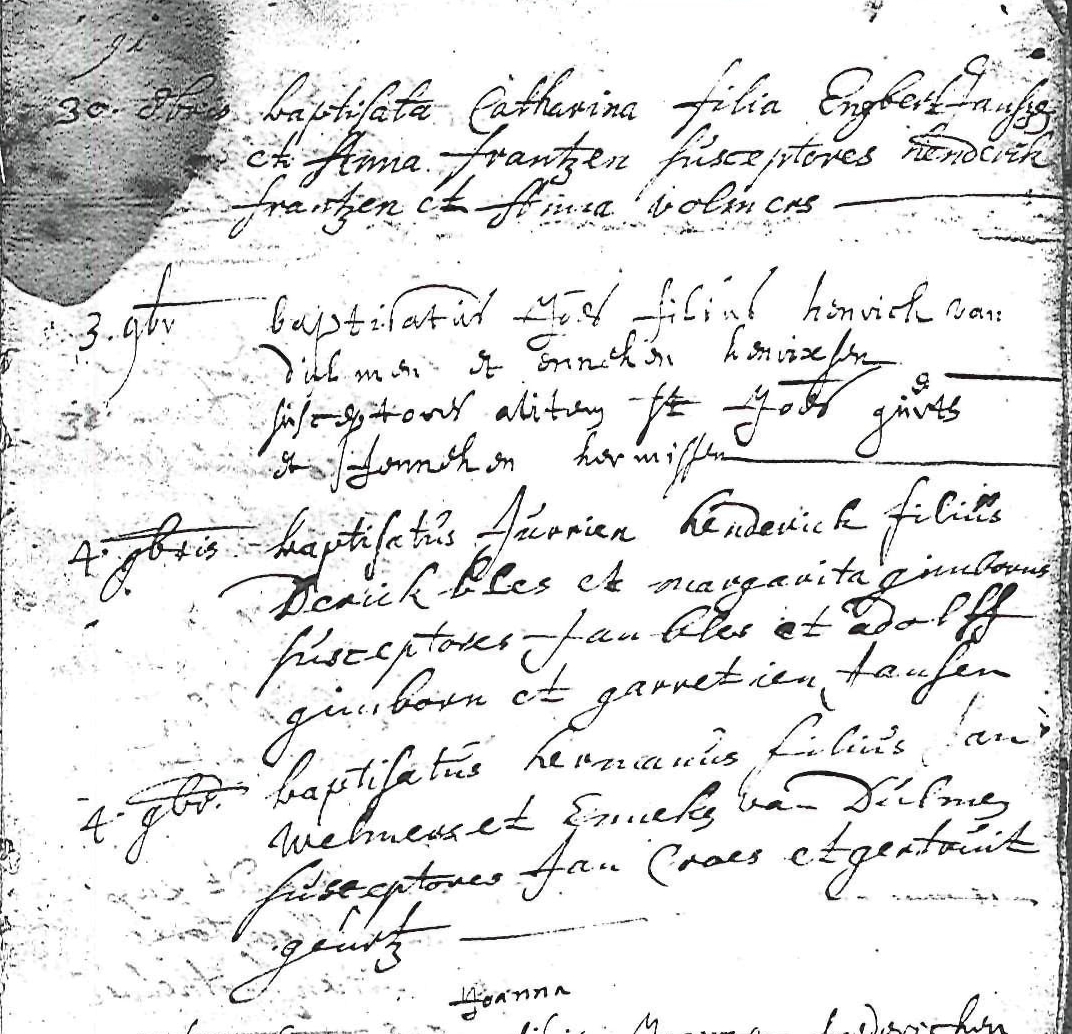 91
30. 8bris baptisata Catharina filia Engbert Jansen
et Anna frantzen susceptores henderick
frantzen et Anna volmers
3. 9br baptisatus Joës filius henrick van
Dulmen et enneken henrixsen
susceptores Joës geurts
et Jenneken hermissen
4. 9bris baptisatus Jurrien henderick filius
Derick bles et margarita gimborns
susceptores Jan bles et adolff
gimborn et garretien Jansen
4. 9br. baptisatus hermanus filius Jan
Welmers et Enneken van Dulmen
susceptores Jan Croes et gertruit
geurtz
Joanna